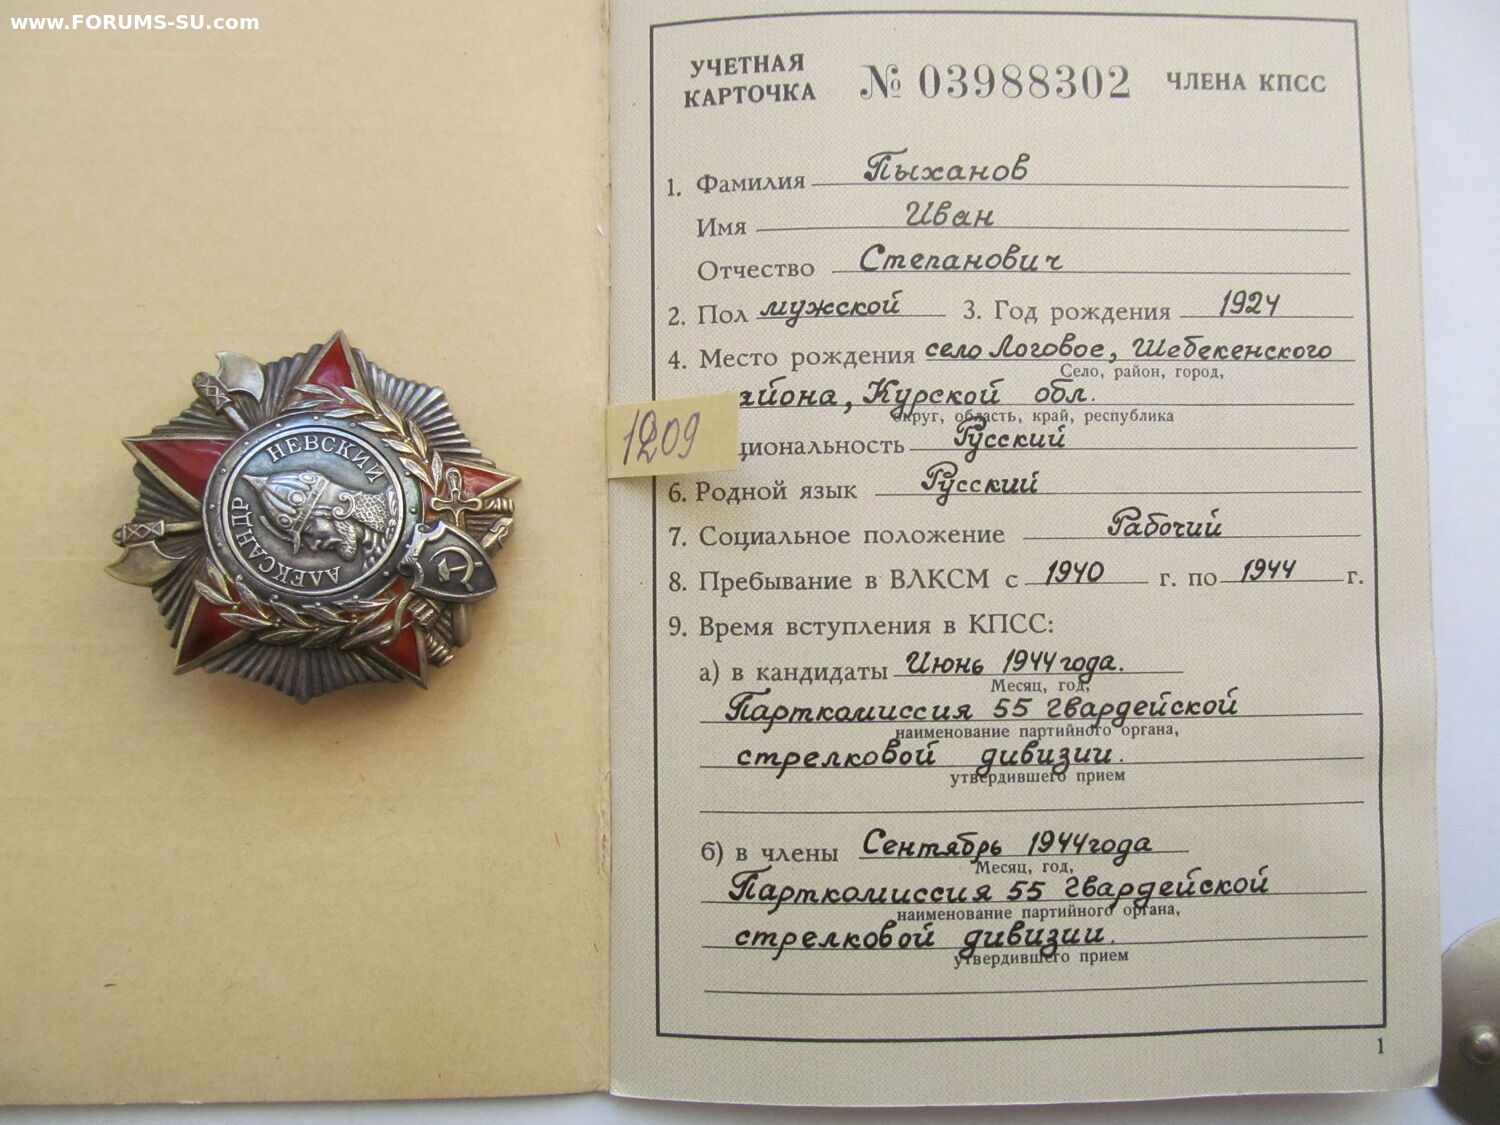 www.FORUMS-SU.com
УЧЕТНАЯ КАРТОЧКА № 03988302 ЧЛЕНА КПСС
1. Фамилия Пыханов
Имя Иван
Отчество Степанович
2. Пол мужской 3. Год рождения 1924
4. Место рождения село Логовое, Шебекенского
Село, район, город,
айона, Курской обл.
округ, область, край, республика
1209
циональность Русский
6. Родной язык Русский
7. Социальное положение Рабочий
8. Пребывание в ВЛКСМ с 1940 г. по 1944 г.
9. Время вступления в КПСС:
а) в кандидаты Июнь 1944 года.
Месяц, год,
Парткомиссия 55 гвардейской
наименование партийного органа,
стрелковой дивизии.
утвердившего прием
б) в члены Сентябрь 1944 года
Месяц, год,
Парткомиссия 55 гвардейской
наименование партийного органа,
стрелковой дивизии.
утвердившего прием
1
АЛЕКСАНДР НЕВСКИЙ